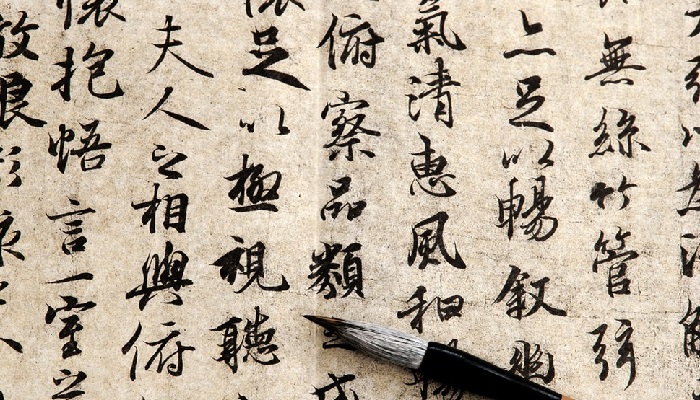 無絲竹管弦
亦足以暢叙幽
氣清惠風和暢
俯察品類之盛
懷足以極視聽
夫人之相與俯
懷抱悟言一室之
放浪形骸之